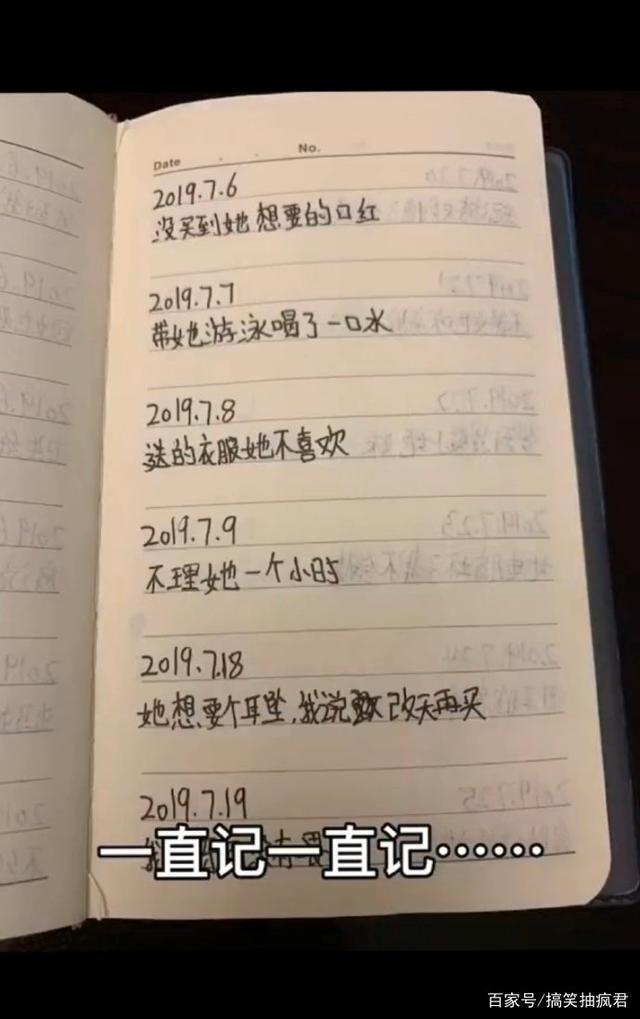 Date . . No.
2019.7.6
没买到她想要的口红
2019.7.7
带她游泳喝了一口水
2019.7.8
送的衣服她不喜欢
2019.7.9
不理她一个小时
2019.7.18
她想要个耳坠，我说改天再买
2019.7.19
一直记一直记……
百家号/搞笑抽疯君